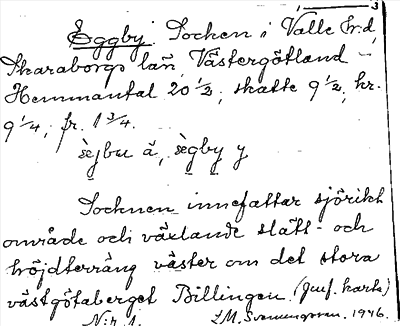 Eggby. Socken i Valle hrd,
Skaraborgs län, Västergötland –
Hemmantal 20 1/2, skatte 9 1/2, kr.
9 1/4, fr. 1 3/4.
sègby y
Socknen innefattar sjörikt
område och växlande slätt- och
höjdterräng väster om det stora
västgötaberget Billingen. (Jmf. karta)
N:r 1. 1946.